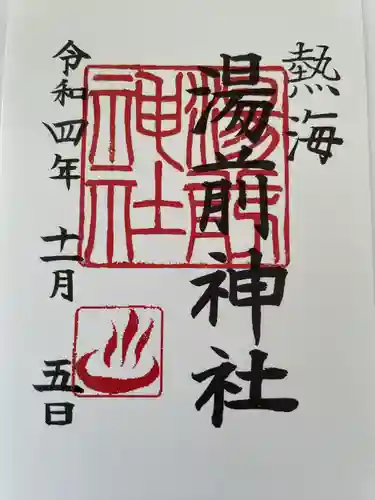 熱海
湯前神社
令和四年 十一月 五日
湯前
神社